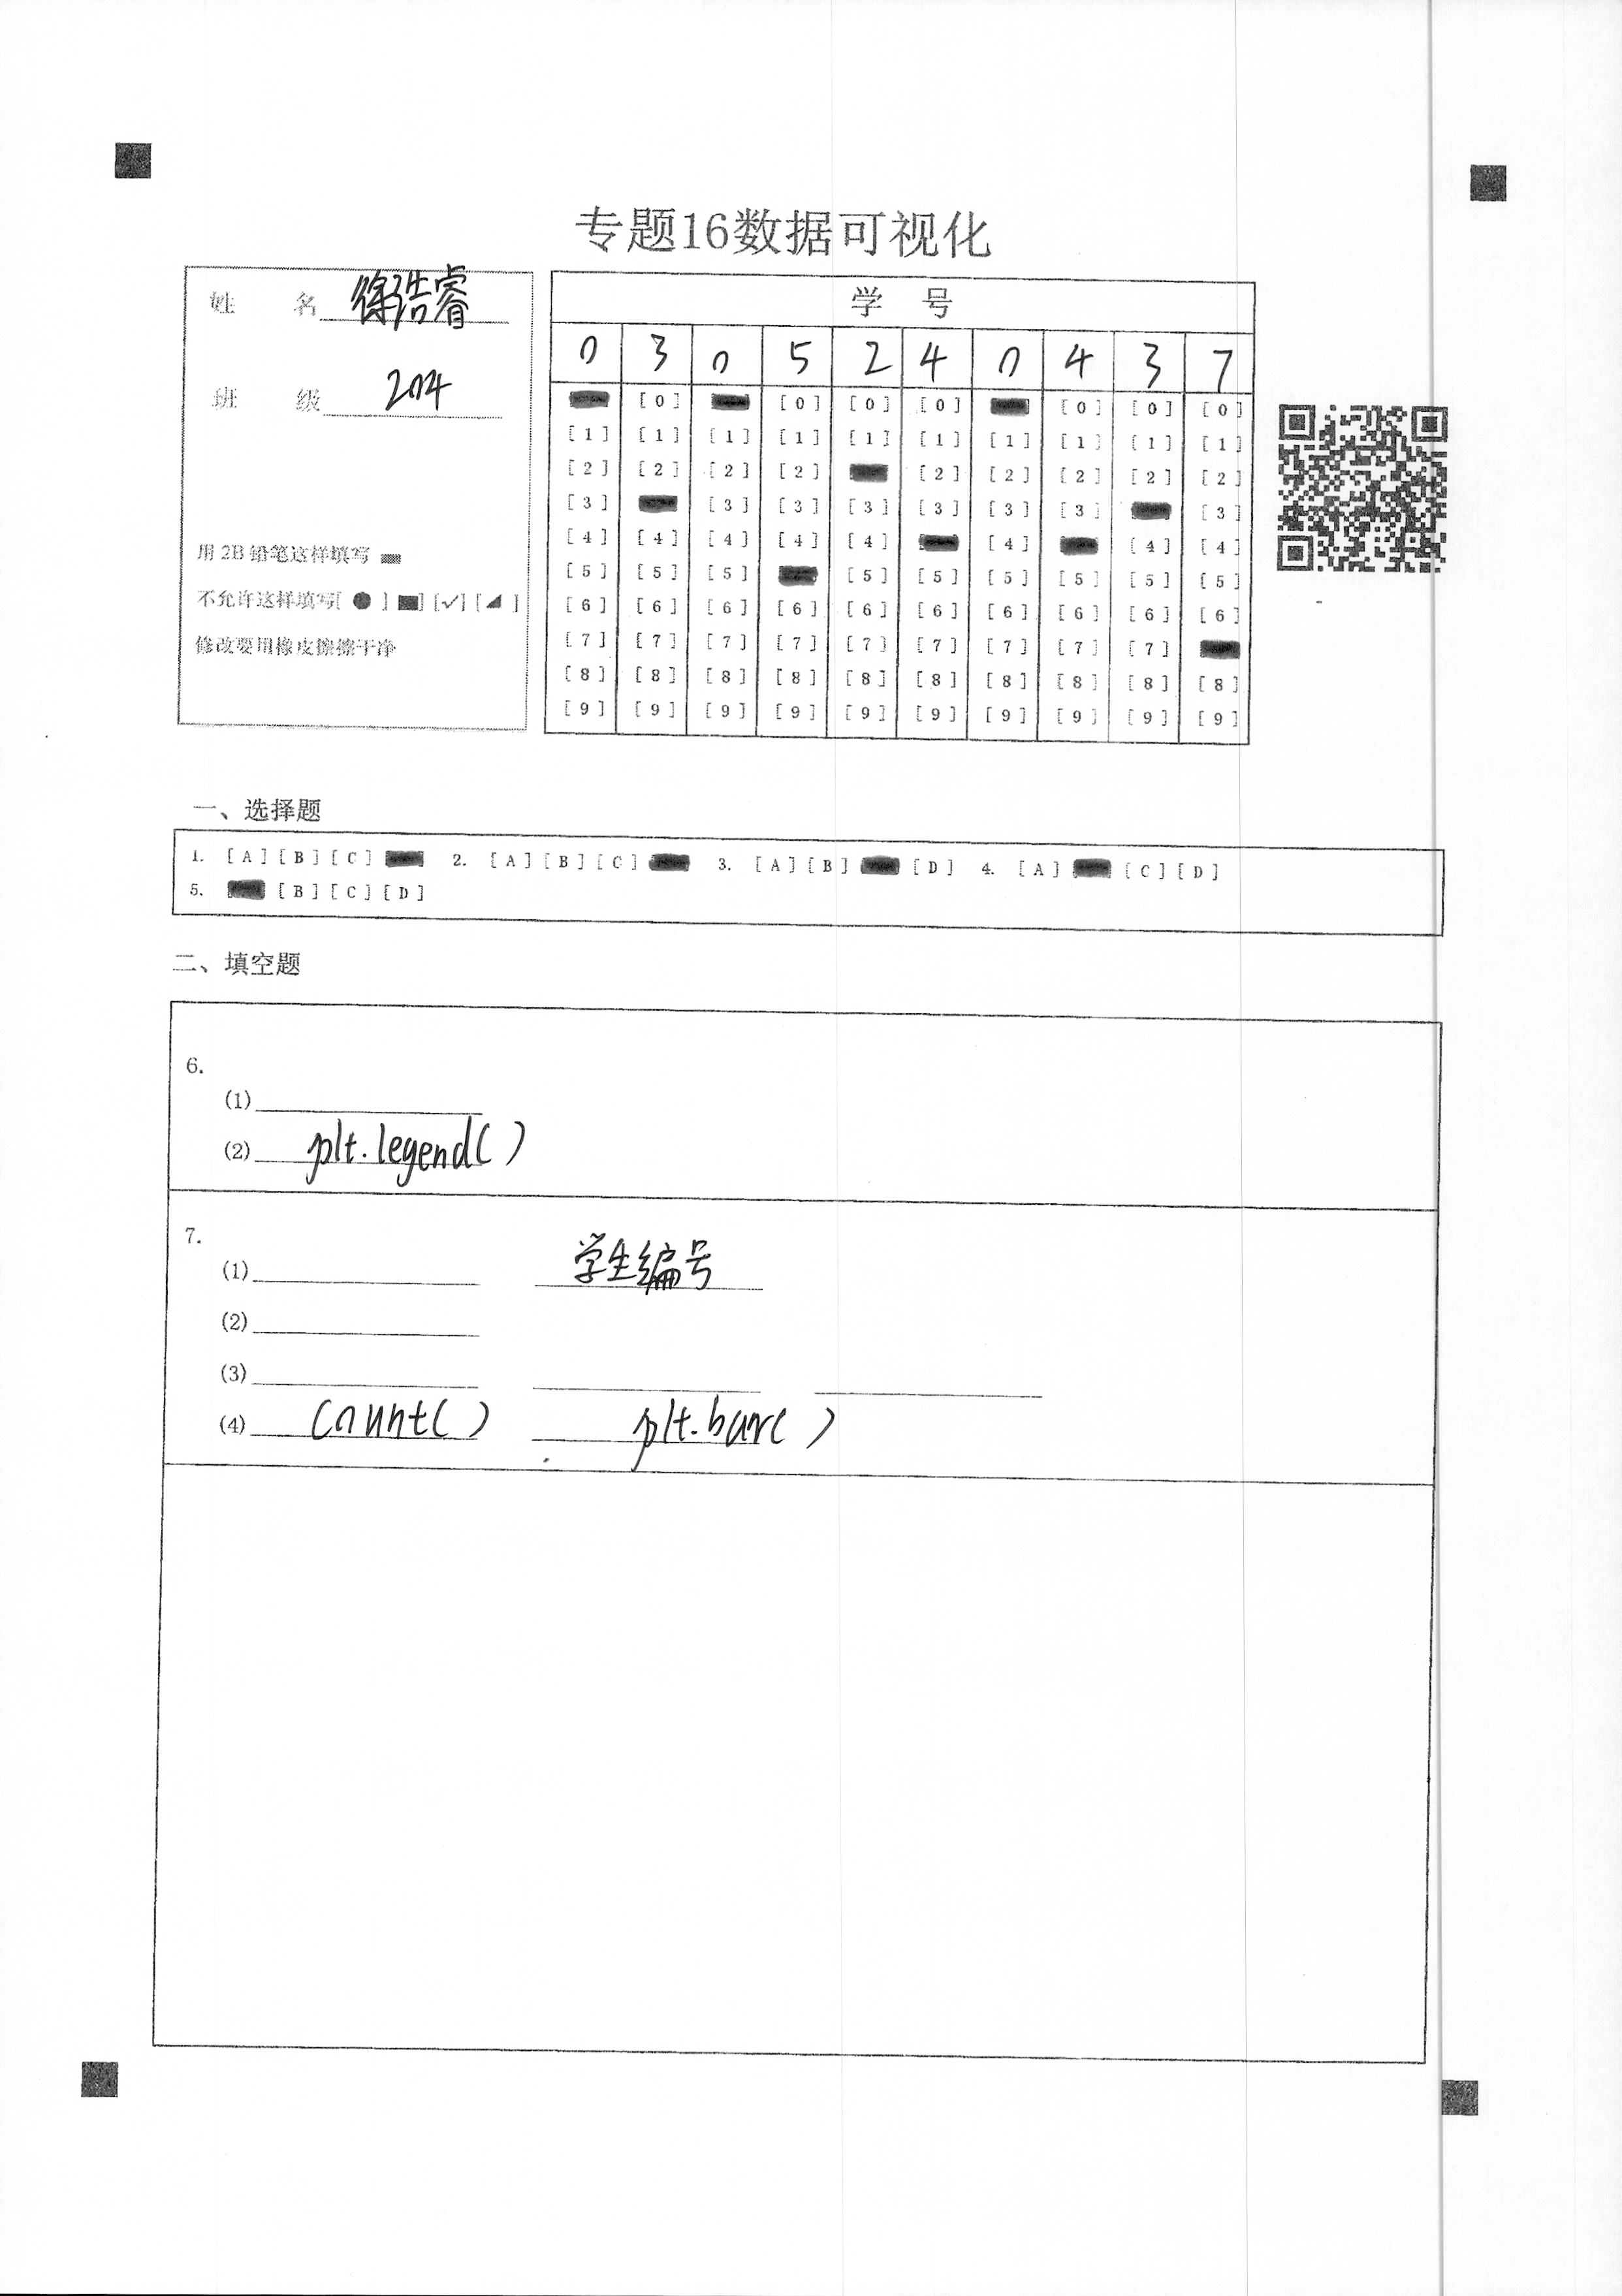 专题16数据可视化
姓 名 徐浩睿
班 级 204
用 2B 铅笔这样填写
不允许这样填写[ ● ] ■] [√] [◢ ]
修改要用橡皮擦擦干净
学 号
0 3 0 5 2 4 0 4 3 7
[0] [0] [0] [0] [0] [0] [0]
[1] [1] [1] [1] [1] [1] [1] [1] [1] [1]
[2] [2] [2] [2] [2] [2] [2] [2] [2]
[3] [3] [3] [3] [3] [3] [3] [3]
[4] [4] [4] [4] [4] [4] [4] [4]
[5] [5] [5] [5] [5] [5] [5] [5] [5]
[6] [6] [6] [6] [6] [6] [6] [6] [6] [6]
[7] [7] [7] [7] [7] [7] [7] [7] [7]
[8] [8] [8] [8] [8] [8] [8] [8] [8] [8]
[9] [9] [9] [9] [9] [9] [9] [9] [9] [9]
一、选择题
1. [A] [B] [C] 2. [A] [B] [C] 3. [A] [B] [D] 4. [A] [C] [D]
5. [B] [C] [D]
二、填空题
6.
(1)
(2) plt.legend()
7.
(1) 学生编号
(2)
(3)
(4) count() plt.bar()